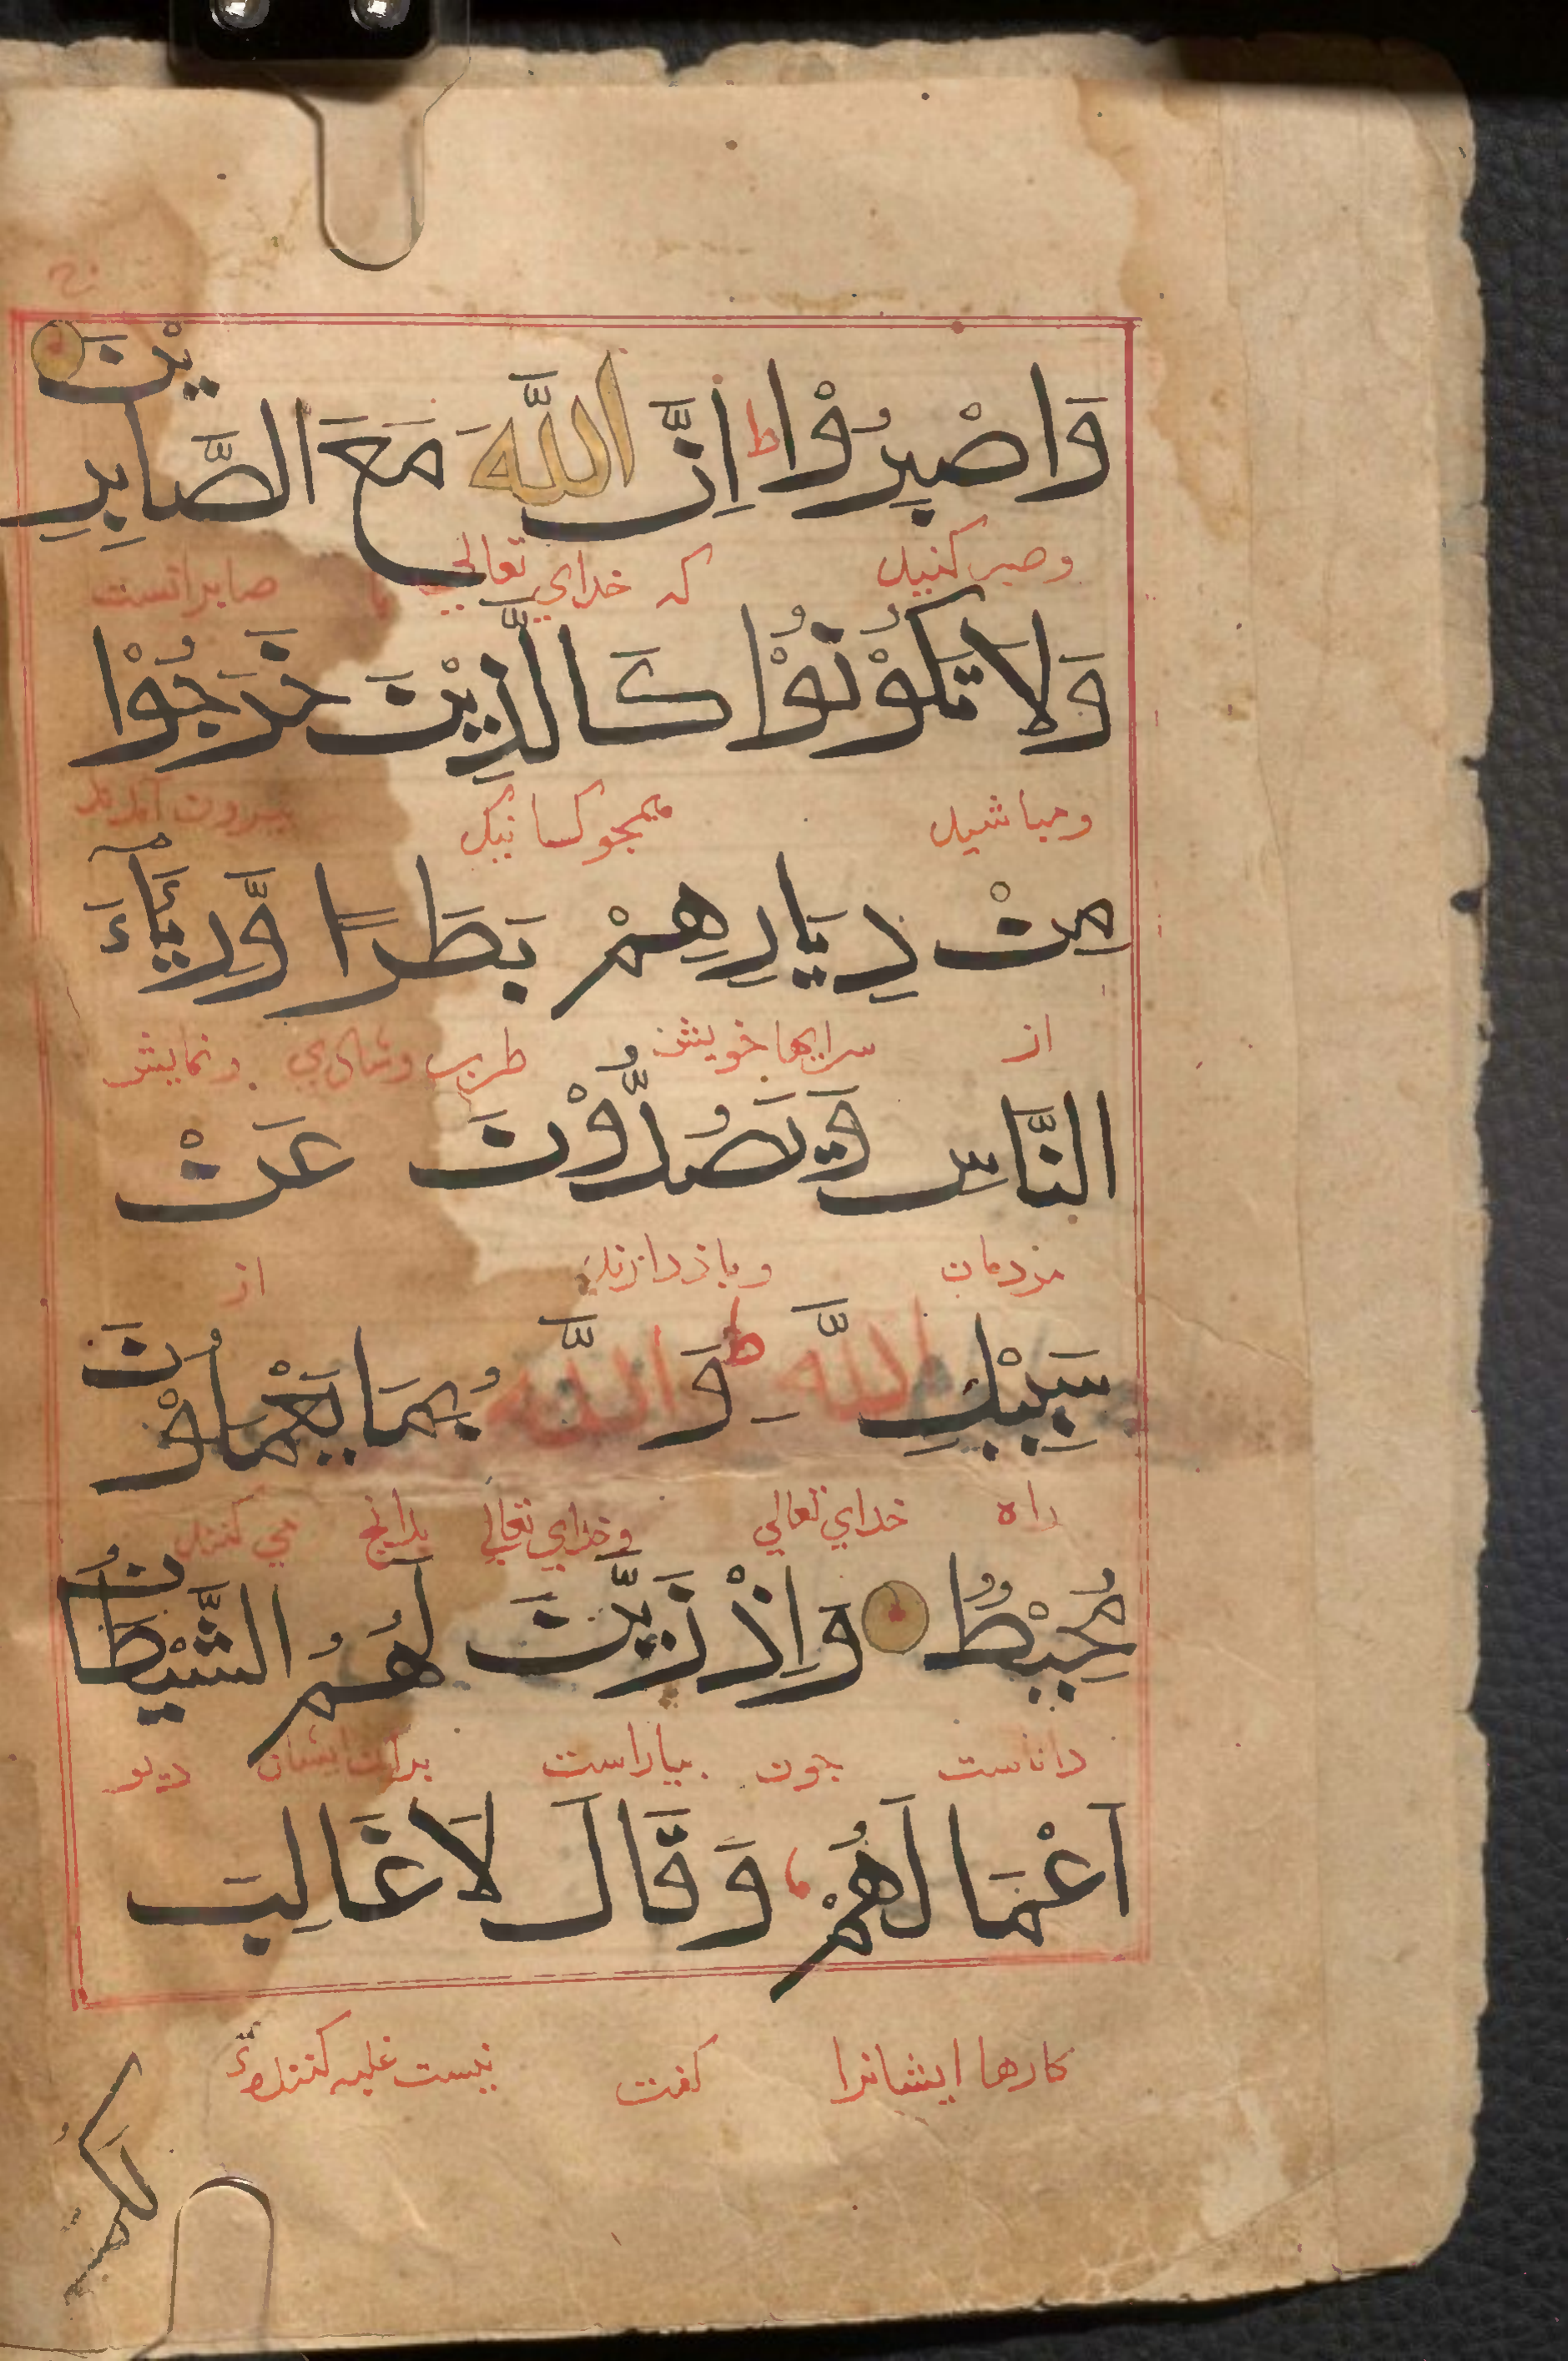 وَاصْبِرُوْا ط اِنَّ اللّٰهَ مَعَ الصَّابِرِيْنَ
وصبر كنيد كه خداي تعالي با صابرانست
وَلَا تَكُوْنُوْا كَالَّذِيْنَ خَرَجُوْا
ومباشيد همجو كسانيكه بيرون آمدند
مِنْ دِيَارِهِمْ بَطَرًا وَّرِئَآءَ
از سرايها خويش طرب وشادي ونمايش
النَّاسِ وَيَصُدُّوْنَ عَنْ
مردمان وباز دارند از
سَبِيْلِ اللّٰهِ ط وَاللّٰهُ بِمَا يَعْمَلُوْنَ
راه خداي تعالي وخداي تعالي بدانچ مي كنند
مُحِيْطٌ وَاِذْ زَيَّنَ لَهُمُ الشَّيْطٰنُ
داناست جون بياراست براي ايشان ديو
اَعْمَالَهُمْ وَقَالَ لَا غَالِبَ
كارها ايشانرا كفت نيست غلبه كننده
لَكُمُ